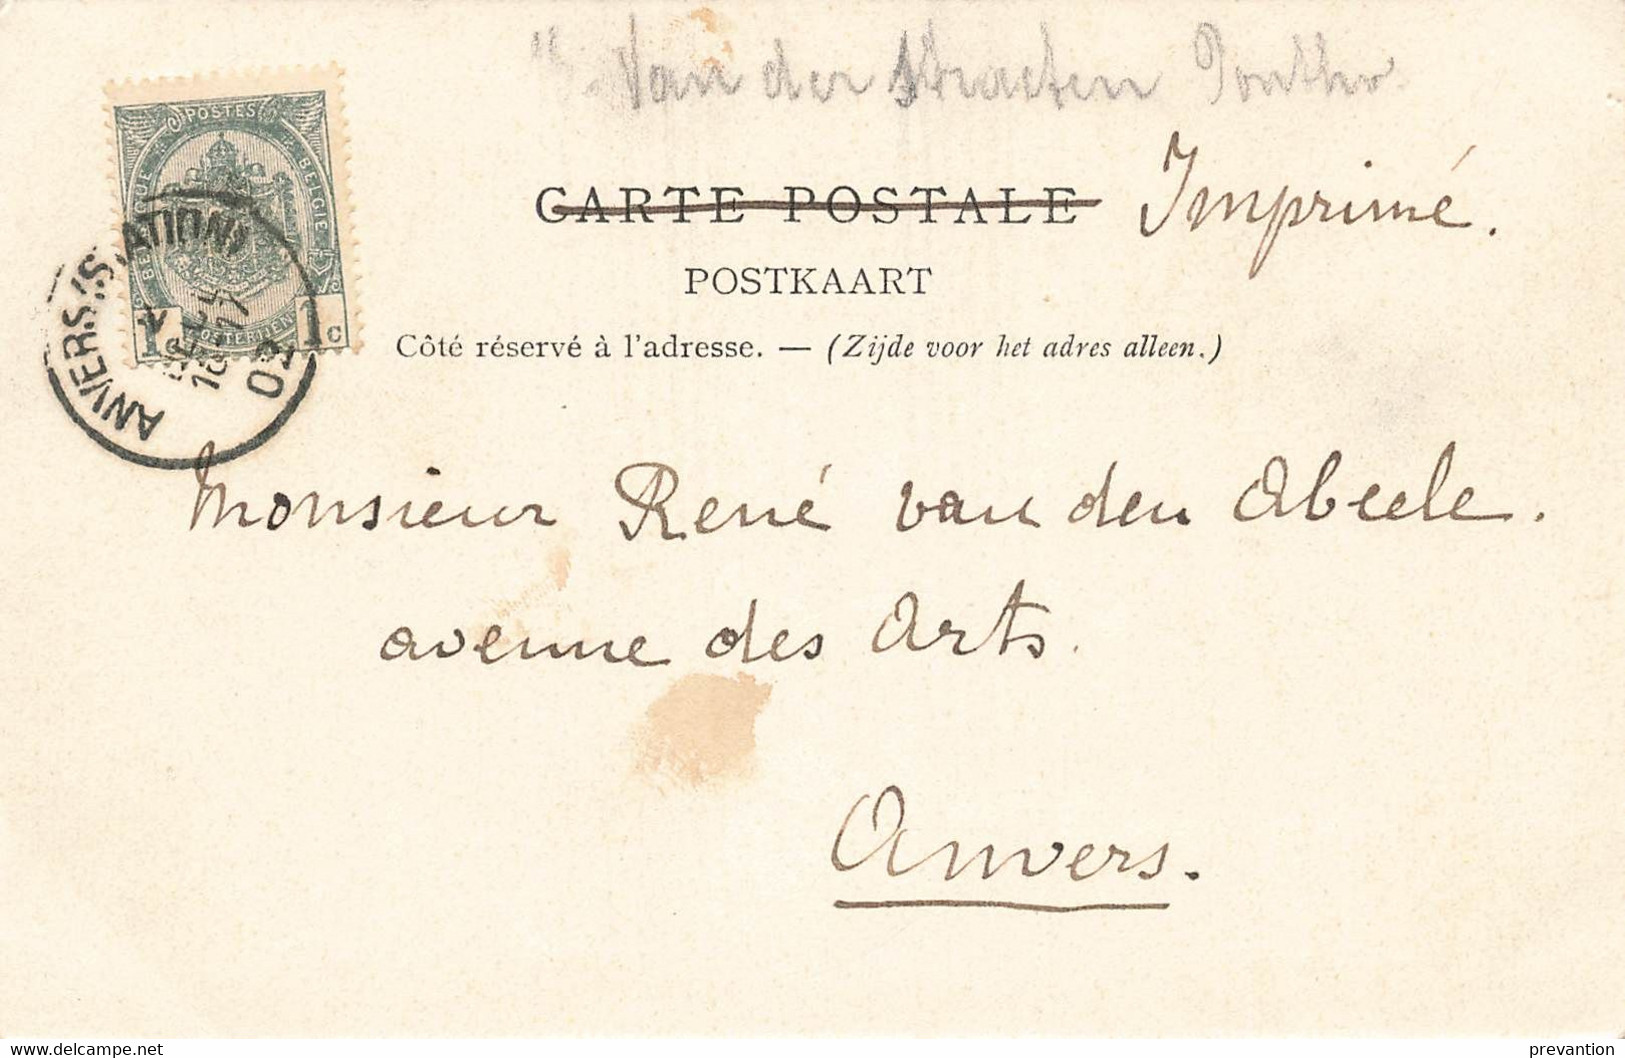 Van der Straeten Ponthoz
POSTES
BELGIQUE
BELGIE
POSTERIJEN
1c 1c
ANVERS (STATION)
02
CARTE POSTALE Imprimé.
POSTKAART
Côté réservé à l'adresse. — (Zijde voor het adres alleen.)
Monsieur René van den Abeele.
avenue des Arts.
Anvers.
https://www.delcampe.net
prevantion